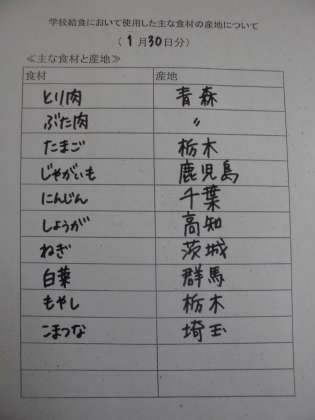 学校給食において使用した主な食材の産地について
(1月30日分)
≪主な食材と産地≫
食材 産地
とり肉 青森
ぶた肉 〃
たまご 栃木
じゃがいも 鹿児島
にんじん 千葉
しょうが 高知
ねぎ 茨城
白菜 群馬
もやし 栃木
こまつな 埼玉